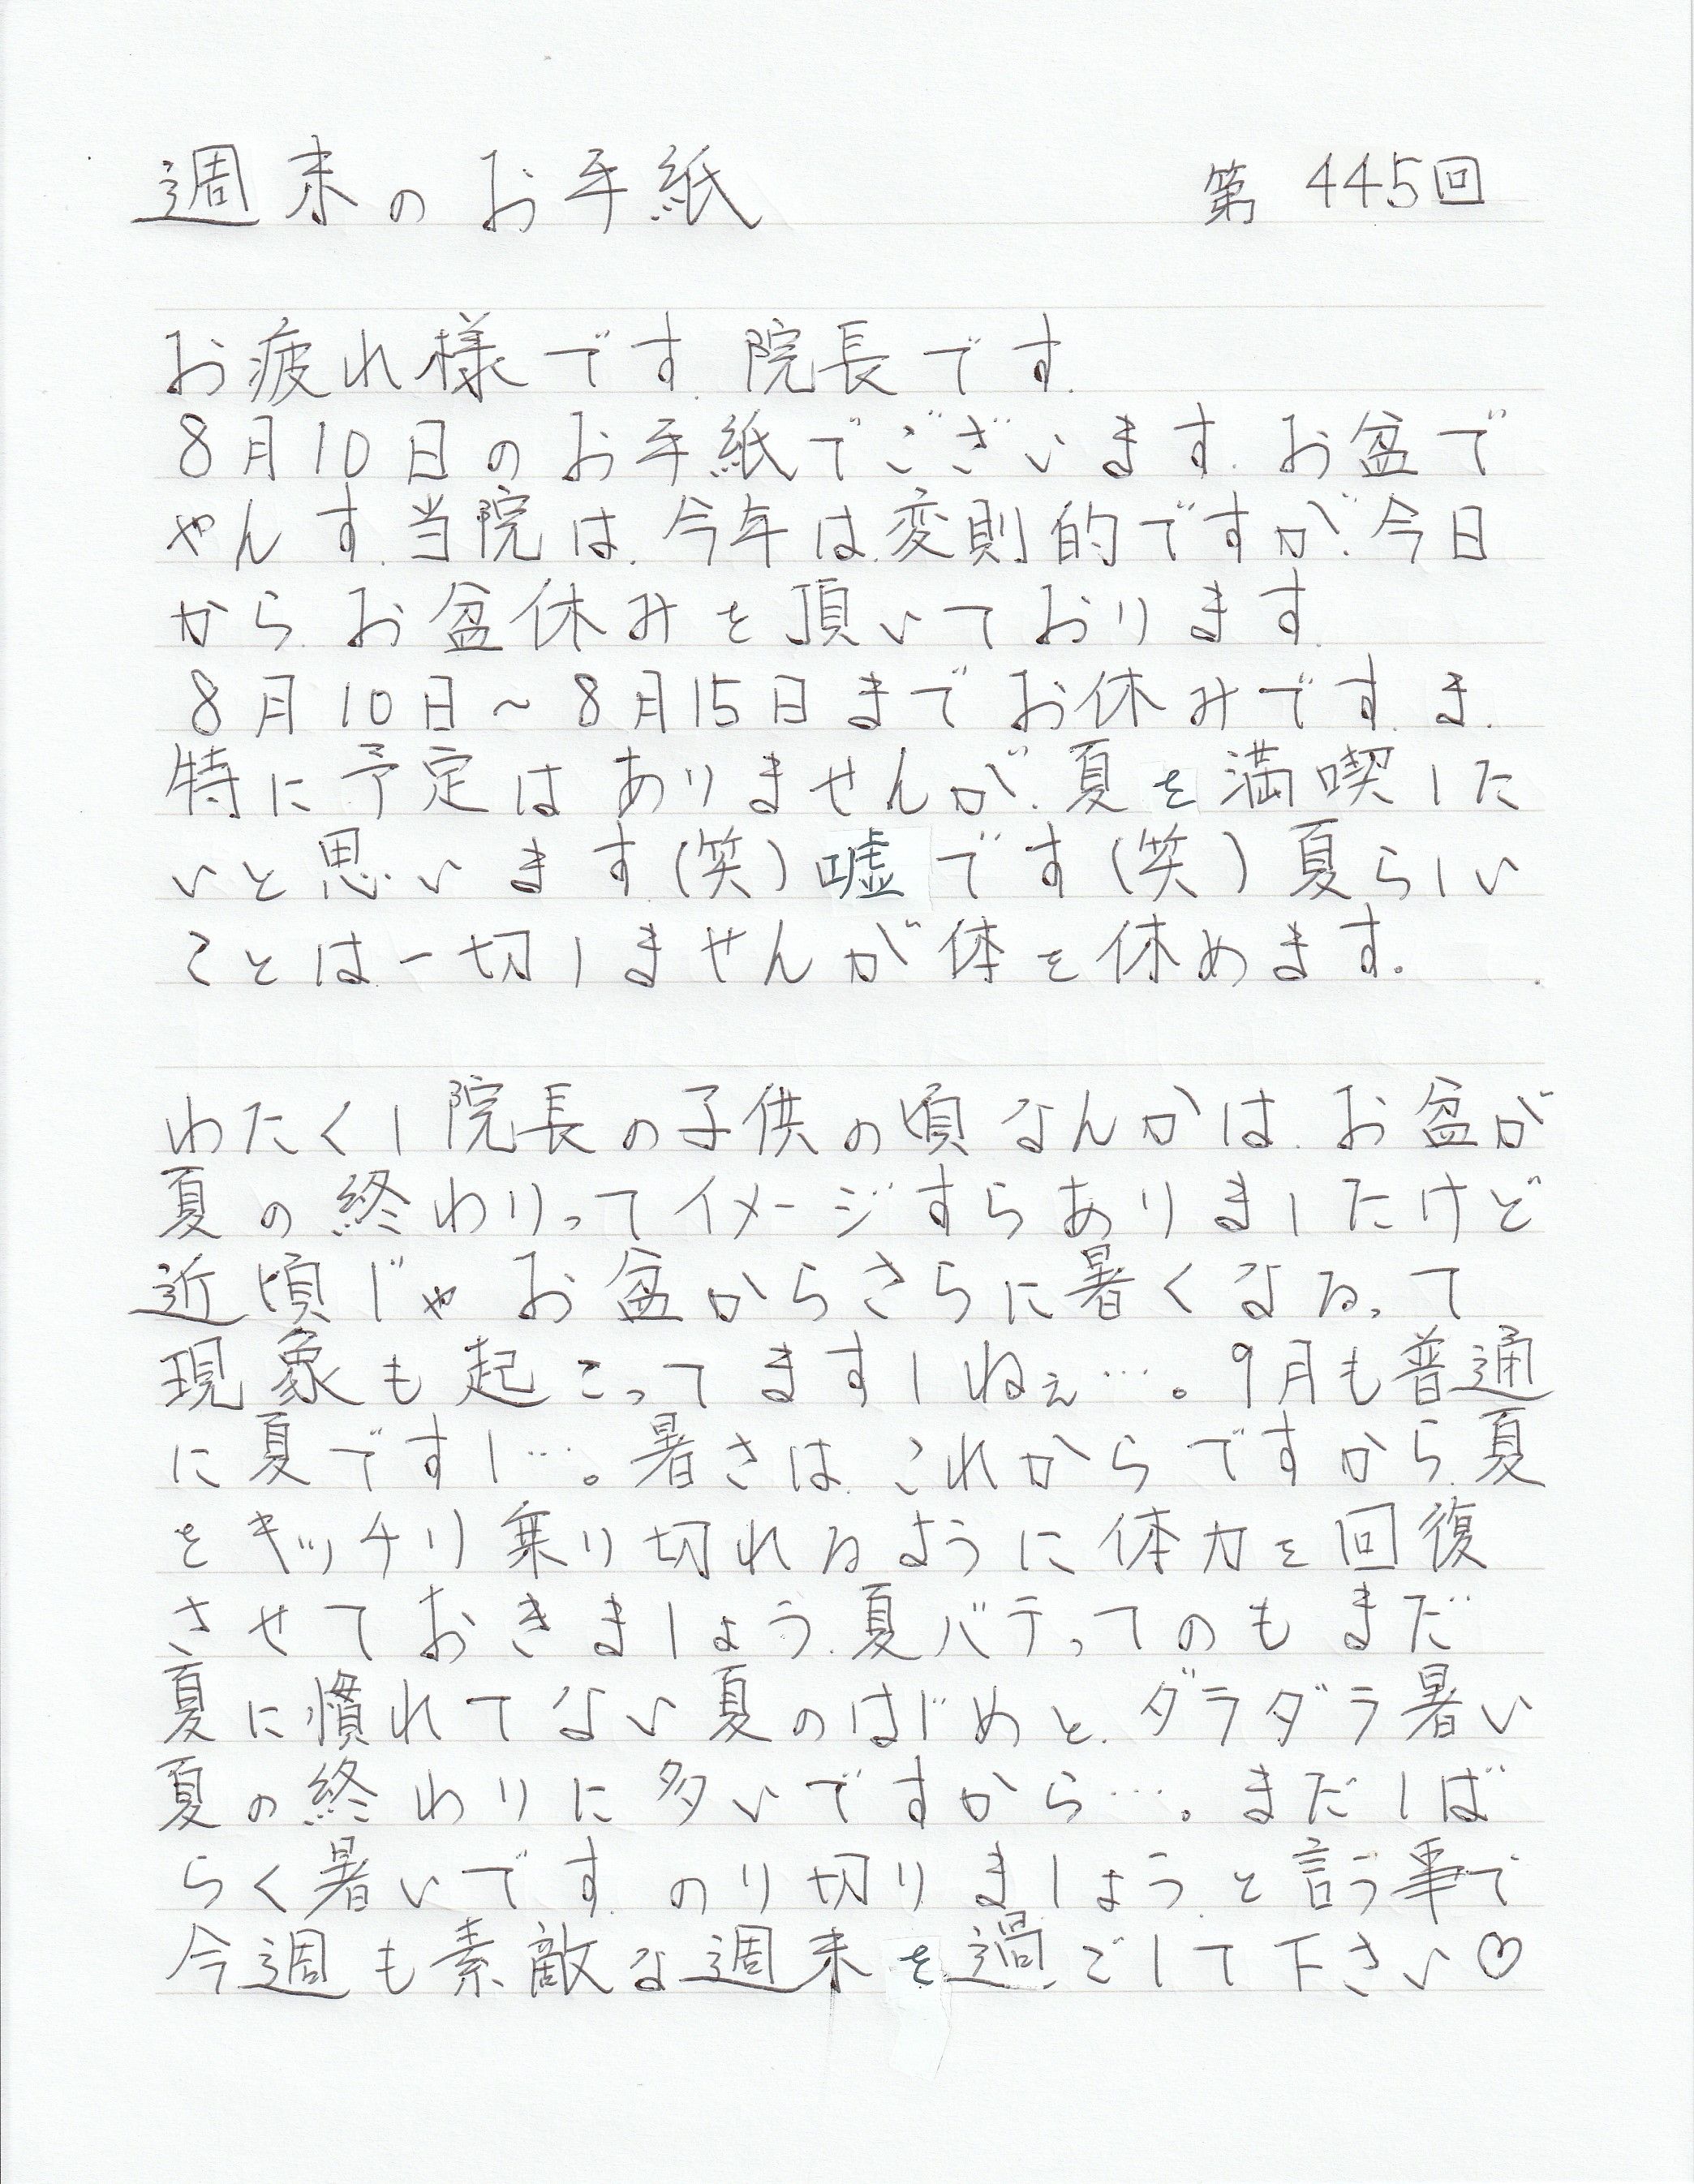 週末のお手紙 第445回
お疲れ様です.院長です.
8月10日のお手紙でございます.お盆で
やんす.当院は.今年は.変則的ですが.今日
から.お盆休みを頂いております.
8月10日~8月15日までお休みです.ま.
特に予定はありませんが.夏を満喫した
いと思います.(笑)嘘です(笑)夏らしい
ことは一切しませんが体を休めます.
わたくし院長の子供の頃なんかは.お盆が
夏の終わりってイメージすらありましたけど
近頃じゃお盆からさらに暑くなるって
現象も起こってますしねぇ…。9月も普通
に夏ですし…。暑さは.これからですから.夏
をキッチリ乗り切れるように体力を回復
させておきましょう.夏バテってのもまだ
夏に慣れてない夏のはじめと.ダラダラ暑い
夏の終わりに多いですから…。まだしば
らく暑いです.のり切りましょう.と言う事で
今週も素敵な週末を過ごして下さい♡